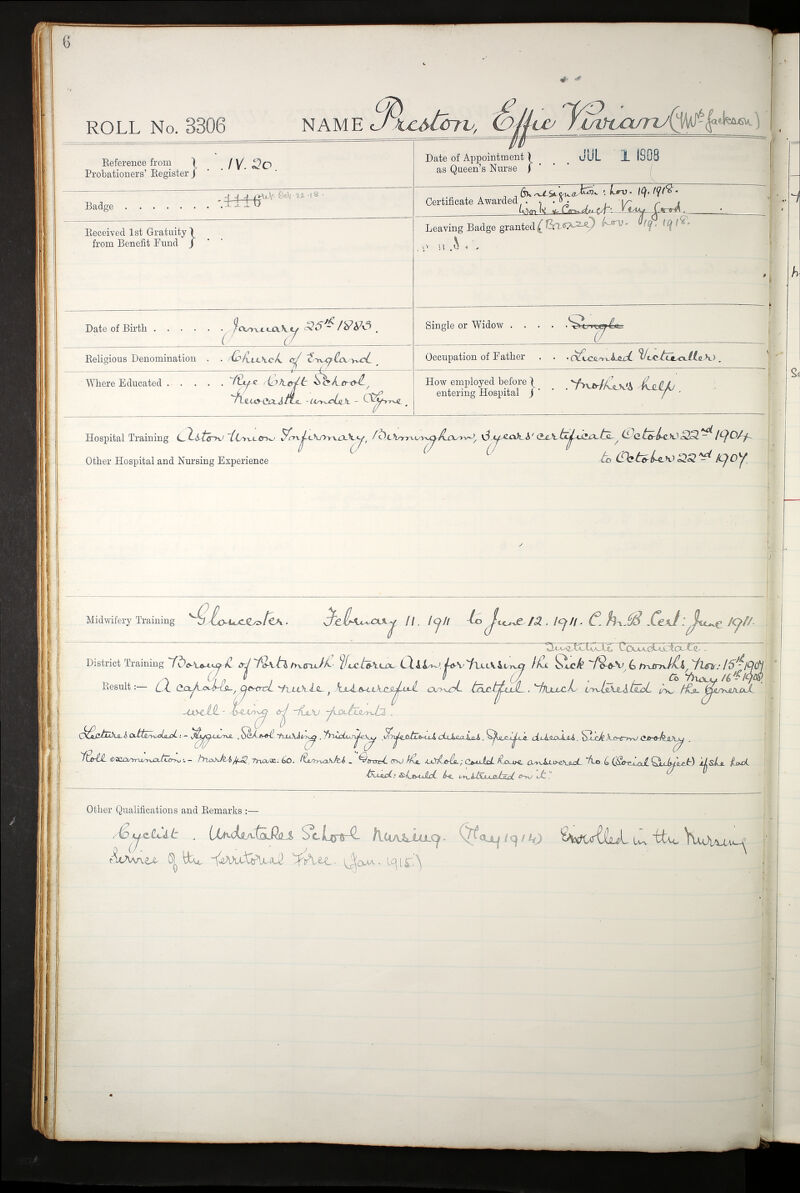 6
ROLL No. 3306 NAME Preston, Effie Vivian (Mrs Jackson)
Reference from Probationers' Register } . . IV. 20.
Date of Appointment as Queen's Nurse } . . . JUL 1 1908
Badge . . . . . . . 1116 Oct 22. 18.
Certificate Awarded On resignation: Nov. 19. 1918.
Work & Conduct: Very Good.
Received 1st Gratuity from Benefit Fund } . .
Leaving Badge granted (Bronze) Nov. 19. 1918.
Date of Birth . . . . . . January 25th 1883.
Single or Widow . . . . . Single
Religious Denomination . . Church of England.
Occupation of Father . . . Licensed Victualler.
Where Educated . . . . . Rye Croft School,
Newcastle-under-Lyme.
How employed before entering Hospital } . . Mother's help.
Hospital Training Aston Union Infirmary, Birmingham, 3 years' certificate, October 22nd 1904
Other Hospital and Nursing Experience to October 22nd 1907.
Midwifery Training Gloucester. February 11. 1911 to June 12. 1911. C.M.B. Cert: June 1911.
Institute Candidate.
District Training Borough of Portsmouth Victoria Assn. for Nursing the Sick Poor, 6 months, Nov: 15th 1907
to May 16th 1908
Result:— A capable, good nurse, resourceful and tactful. Much interested in the general
well-being of her patients.
Lectures attended:- Hygiene, School nursing, Midwifery, Infectious diseases, Specific diseases, Sick room cookery.
Roll examination:- Marks 42, max: 60. Remarks - "Good on the whole; could have answered No 6 (Social Subject) if she had
tried: should be instructed on it."
Other Qualifications and Remarks :—
Cyclist. Undertakes School Nursing. (May 1914) Enrolled in the Nursing
Service of the Territorial Force. (Jan. 1915)